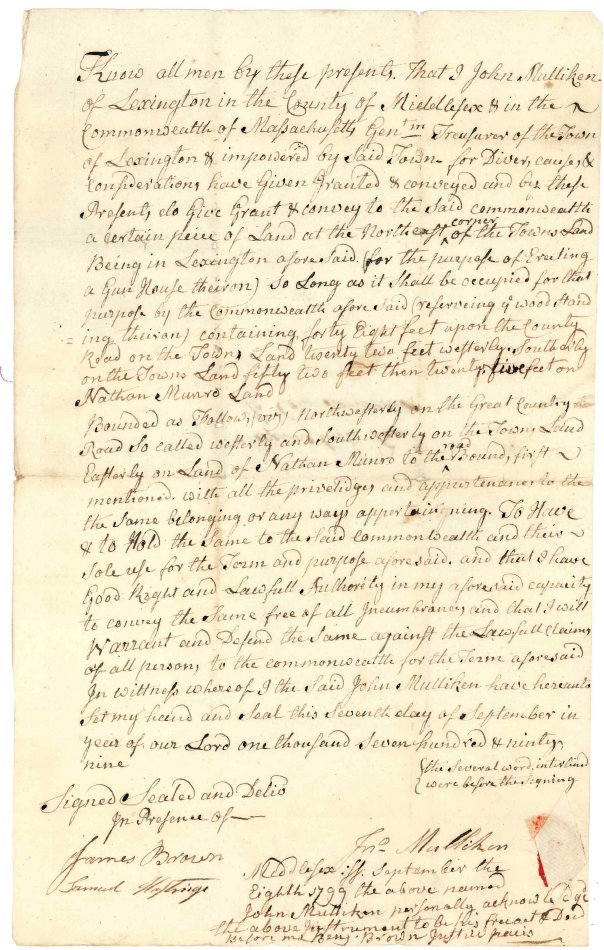 Know all men by these presents. That I John Mulliken
of Lexington in the County of Middlesex & in the
Commonwealth of Massachusetts Gentm Treasurer of the Town
of Lexington & impowered by Said Town for Divers causes &
Considerations have Given Granted & conveyed and by these
Presents do Give Grant & convey to the Said commonwealth
a certain peice of Land at the Northeast corner of the Towns Land
Being in Lexington aforesaid (for the purpose of Erecting
a Gun House theiron) So Long as it Shall be occupied for that
purpose by the Commonwealth afore Said (reserveing ye wood Stand
ing theiron) containing forty Eight feet upon the County
Road on the Towns Land twenty two feet westerly. Southerly
on the Towns Land fifty two feet then twenty five feet on
Nathan Munro Land
Bounded as Follows, (viz) Northwesterly on the Great Country
Road So called westerly and Southwesterly on the Towns Land
Easterly on Land of Nathan Munro to the road Bounds first
mentioned. with all the priveledges and appurtenances to the
the Same belonging or any ways appertaigning. To Have
& to Hold the Same to the Said commonwealth and their
Sole use for the Term and purpose aforesaid. and that I have
Good Right and Lawfull Authority in my aforesaid capacity
to convey the Same free of all Incumbrances and that I will
Warrant and Defend the Same against the Lawfull Claims
of all persons to the commonwealth for the Term aforesaid
In wittness whereof I the Said John Mulliken have hereunto
Set my hand and Seal this Seventh day of September in
year of our Lord one thousand Seven hundred & ninty
nine
(the Several words interlined
were before the Signing
Signed Sealed and Delivd
In Presence of
Jno Mulliken
James Brown
Samuel Hastings
Middlesex: ss. September the
Eighth 1799 the above named
John Mulliken personally acknowledged
the above Instrument to be his free act & Deed
Before me Benj. Brown Justice pacis